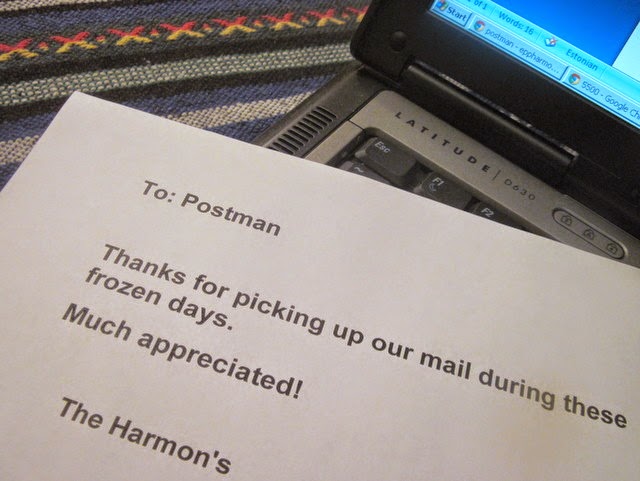 of 1 Words: 16
Start postman - eppharmo... Estonian 5500 - Google Ch
LATITUDE | D630
Esc
~
F1
F2
To: Postman
Thanks for picking up our mail during these
frozen days.
Much appreciated!
The Harmon's